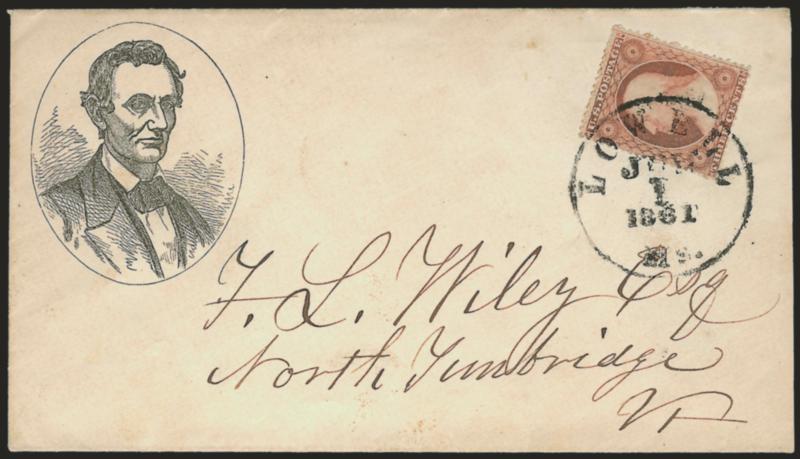 U.S. POSTAGE
CENTS
LOWELL
1
1861
Ms.
F. L. Wiley Esq
North Tunbridge
Vt